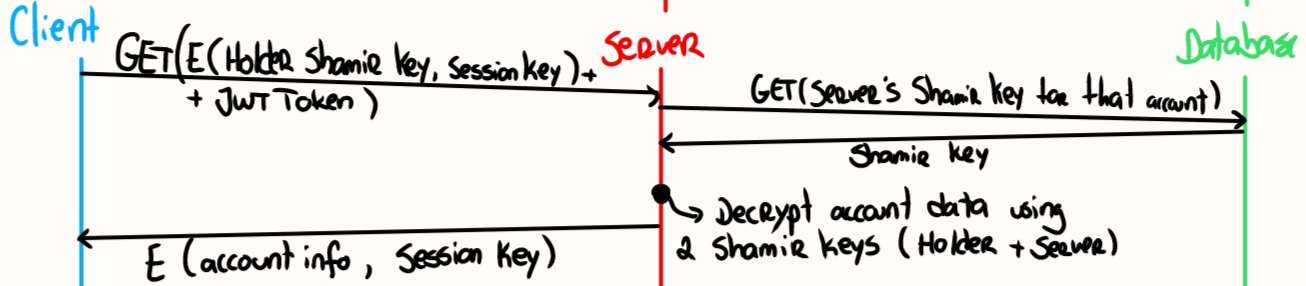 Client
Server
Database
GET(E(Holder Shamir Key, Session Key)+
+ JWT Token)
GET(Server's Shamir Key for that account)
Shamir Key
Decrypt account data using
2 Shamir Keys (Holder + Server)
E (account info, Session Key)